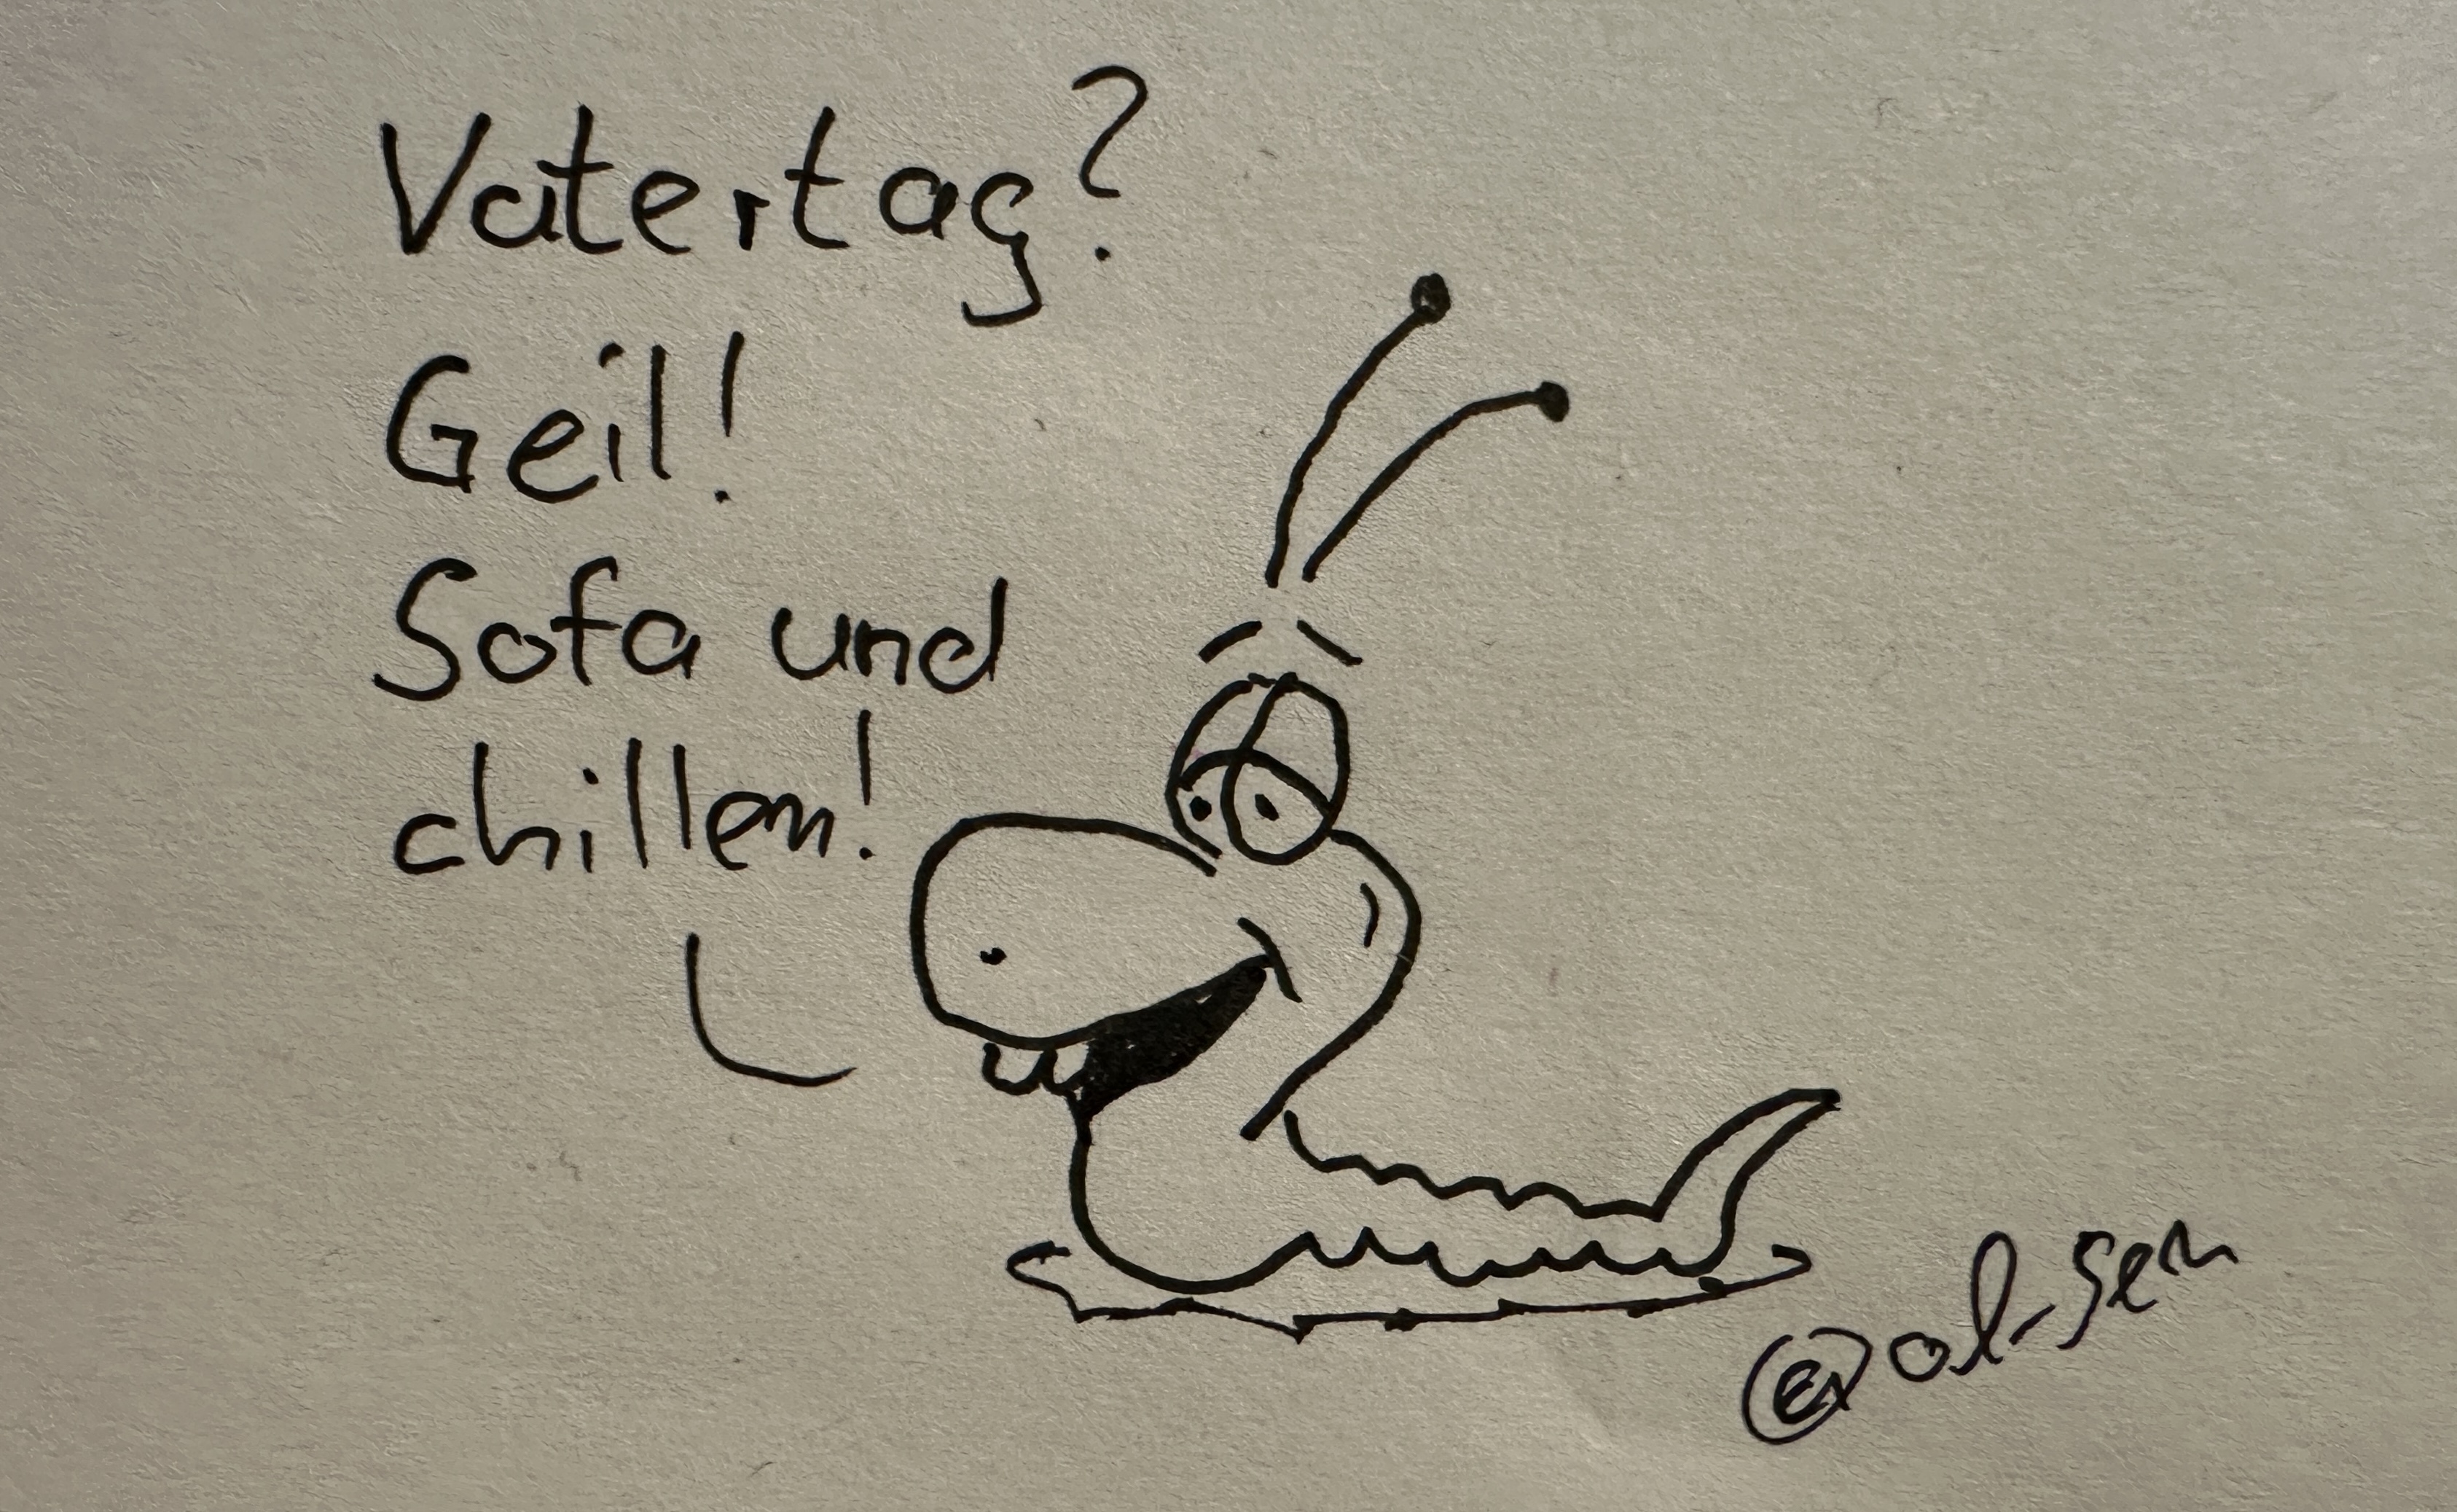 Vatertag?
Geil!
Sofa und
chillen!
@ol-sen